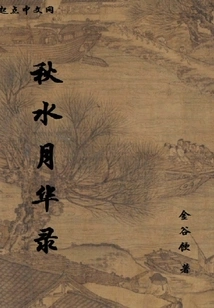 起点中文网
秋水月华录
金谷钦 著